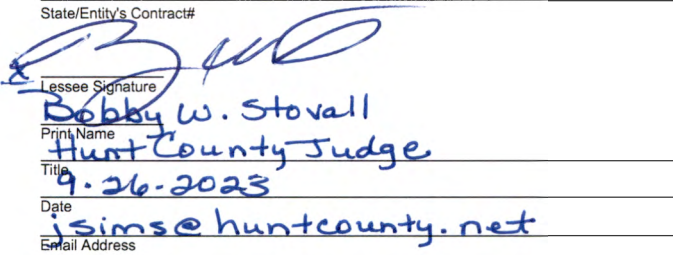 State/Entity's Contract#
x
Lessee Signature
Bobby W. Stovall
Print Name
Hunt County Judge
Title
9-26-2023
Date
jsims@huntcounty.net
Email Address